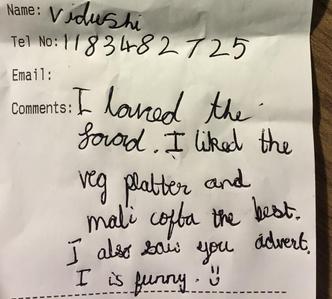 Name: Vidushi
Tel No: 1183482725
Email:
Comments: I loved the
foood. I liked the
veg platter and
mali cofta the best.
I also saw you advert.
I is funny. ü